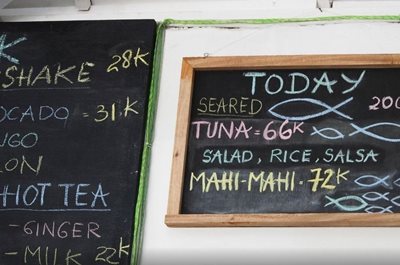 SHAKE 28K
OCADO = 31K
NGO
ON
HOT TEA
- GINGER
- MILK 22K
TODAY
SEARED 200
TUNA = 66K
SALAD, RICE, SALSA
MAHI-MAHI - 72K